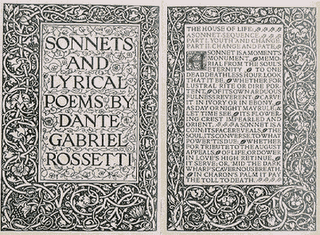 SONNETS
AND
LYRICAL
POEMS BY
DANTE
GABRIEL
ROSSETTI
THE HOUSE OF LIFE.
A SONNET SEQUENCE.
PART I. YOUTH AND CHANGE
PART II. CHANGE AND FATE
A SONNET IS A MOMENT'S
MONUMENT, MEMO-
RIAL FROM THE SOUL'S
ETERNITY TO ONE
DEAD DEATHLESS HOUR. LOOK
THAT IT BE, WHETHER FOR
LUSTRAL RITE OR DIRE POR-
TENT, OF ITS OWN ARDUOUS
FULNESS REVERENT: CARVE
IT IN IVORY OR IN EBONY,
AS DAY OR NIGHT MAY RULE; &
LET TIME SEE ITS FLOWER-
ING CREST IMPEARLED AND
ORIENT. A SONNET IS A
COIN: ITS FACE REVEALS THE
SOUL, ITS CONVERSE, TO WHAT
POWER 'TIS DUE: WHETHER
FOR TRIBUTE TO THE AUGUST
APPEALS OF LIFE, OR DOWER
IN LOVE'S HIGH RETINUE,
IT SERVE; OR, MID THE DARK
WHARF'S CAVERNOUS BREATH,
IN CHARON'S PALM IT PAY
THE TOLL TO DEATH.